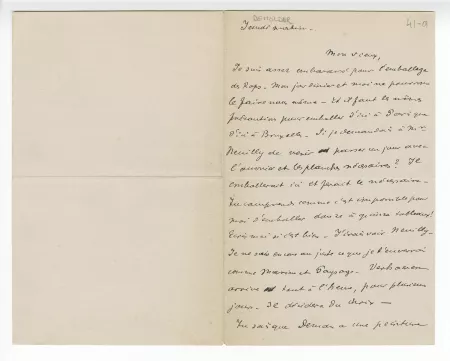 DEMOLDER
41-8
Jeudi matin.
Mon vieux,
Je suis assez embarassé pour l'emballage
des Rops. Mon jardinier et moi ne pouvons
le faire nous même. Et il faut les mêmes
précautions pour emballer d'ici à Paris que
d'ici à Bruxelles. Si je demandais à Mr
Neuilly de venir passer un jour avec
l'ouvrier et les planches nécessaires? Il
emballerait ici et ferait le nécessaire.
Tu comprends comme c'est impossible pour
moi d'emballer douze à quinze tableaux!
Ecris moi si c'est bien. J'irai voir Neuilly.
Je ne sais encore au juste ce que je t'enverrai
comme Marines et Paysage. Verhaeren
arrive tout à l'heure, pour plusieurs
jours. Il décidera du choix —
Tu sais que a une peinture